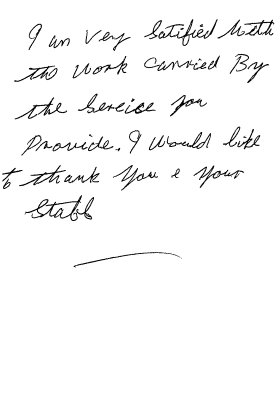 I am very Satified With
the Work Carried By
the Service you
Provide. I Would like
to thank You & Your
Staff